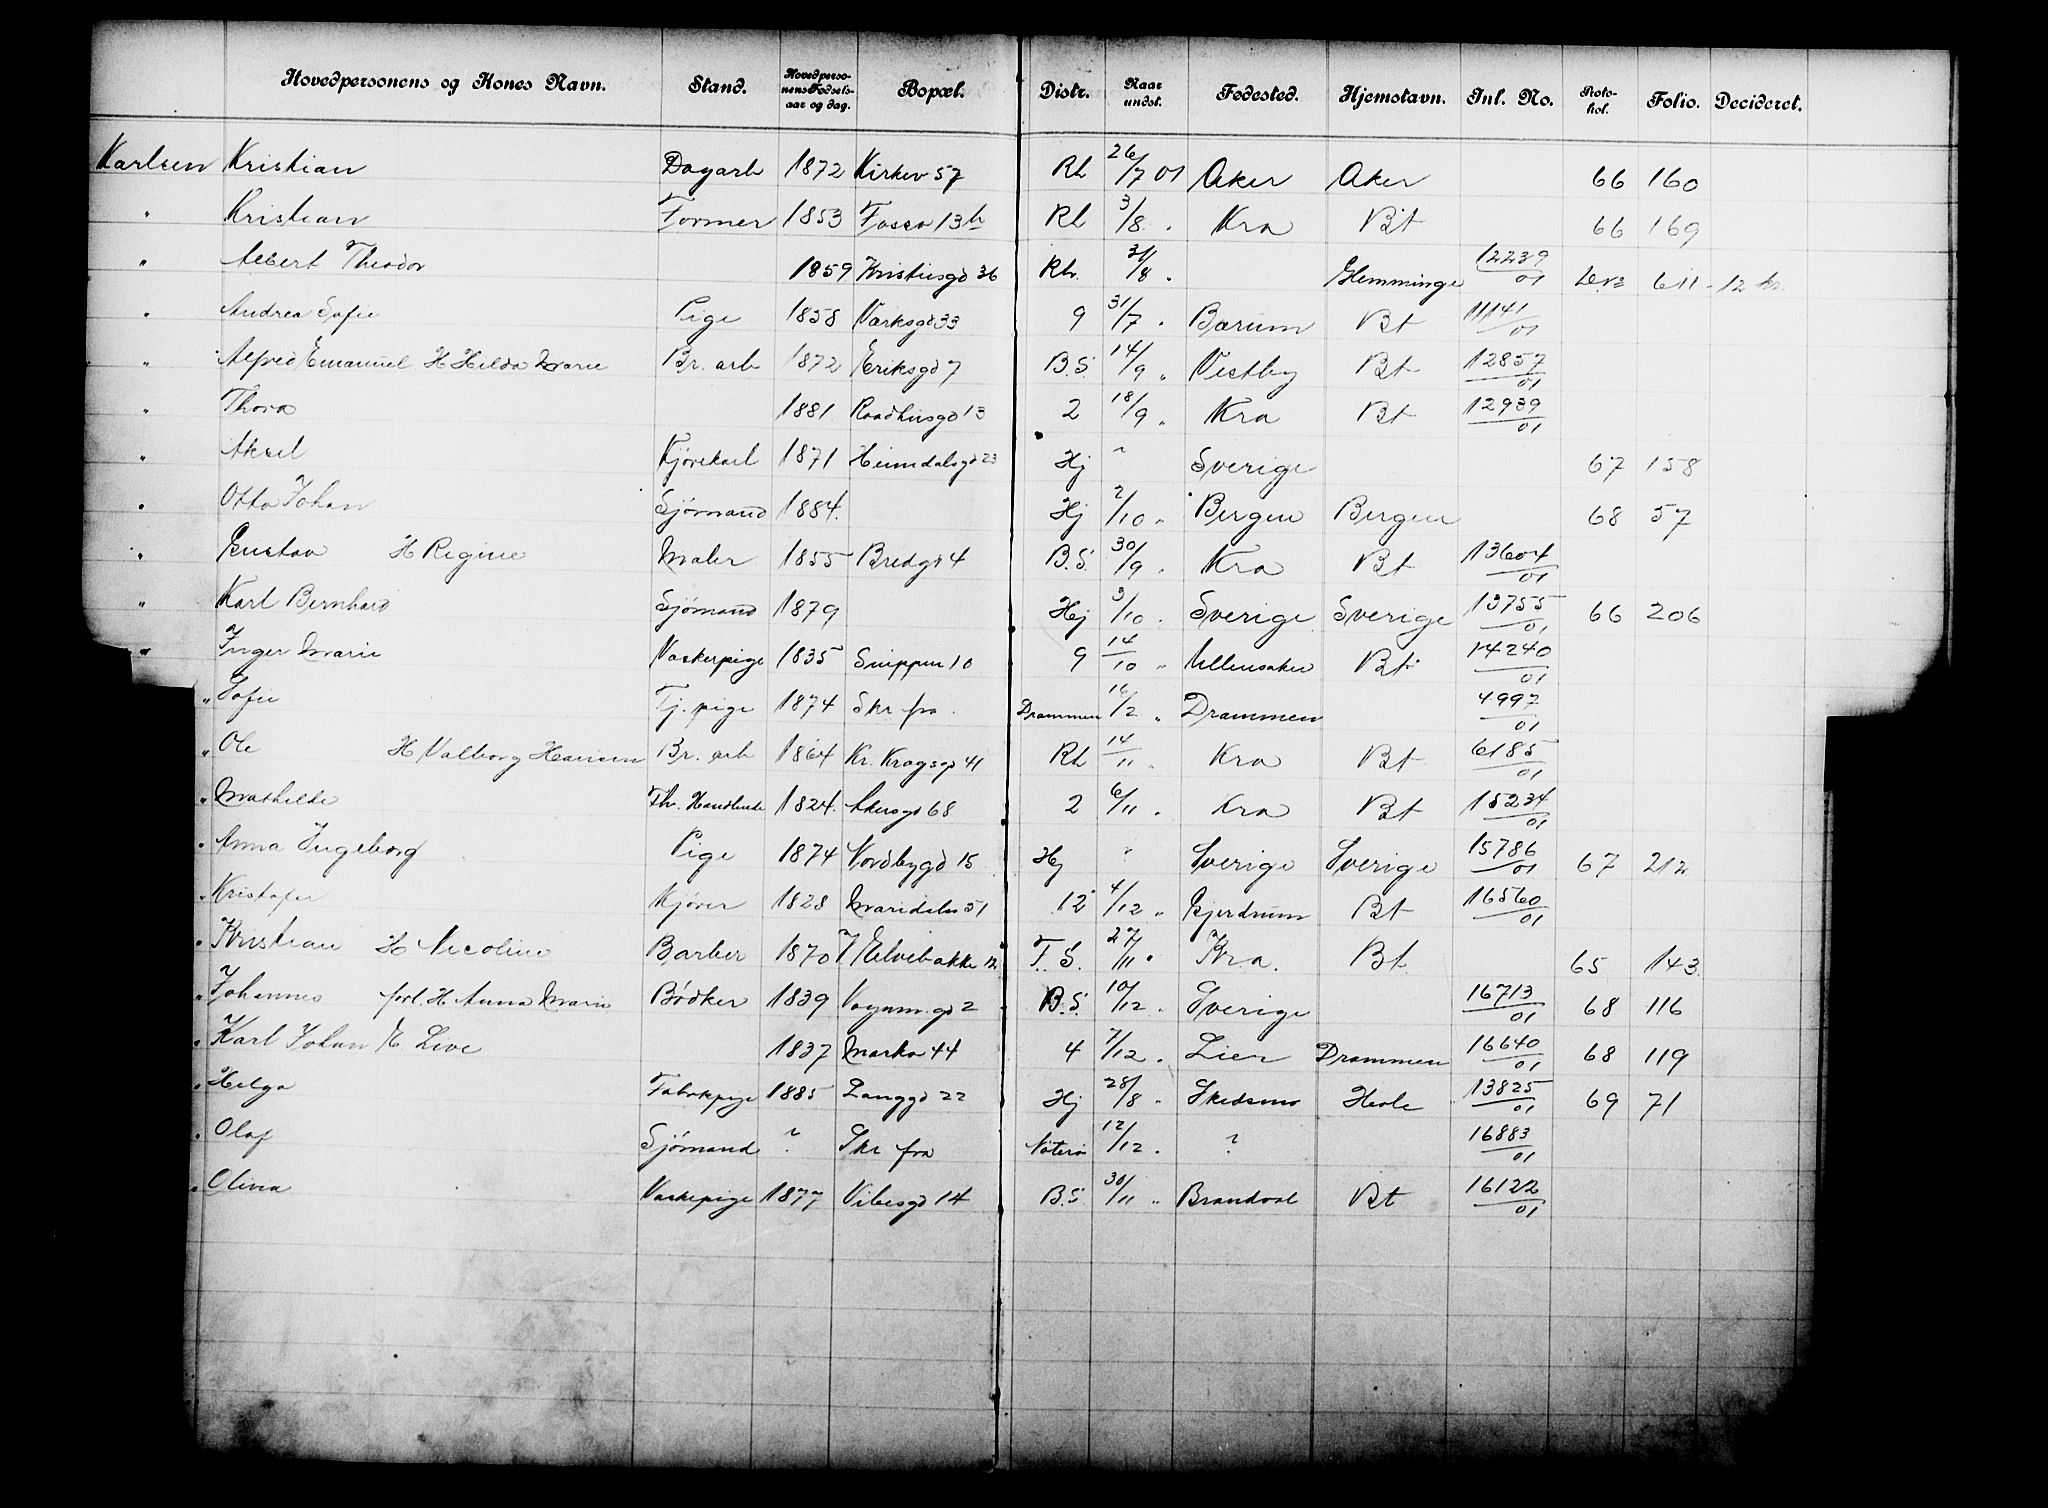 Hovedpersonens og Kones Navn. Stand. Hovedpersonens Fødselsaar og dag. Bopæl. Distr. Naar undst. Fødested. Hjemstavn. Inl. No. Protokol. Folio. Decideret.
Karlsen Kristian Dagarb 1872 Kirkev 57 Rh 26/7 01 Aker Aker 66 160
" Kristian Former 1853 Fossv 13b Rh 3/8 " Kra Bt 66 169
" Albert Theodor 1859 Kristiesgd 36 Rh. /8 " Glemminge 12239/01 611 - 12 kr.
" Andrea Sofie Pige 1858 Værksgd 33 9 31/7 " Bærum Bt 11141/01
" Alfred Emanuel H Hilda Marie Br. arb 1872 Eriksgd 7 B.S. 14/9 " Vestby Bt 12857/01
" Thora 1881. Raadhusgd 13 2 18/9 " Kra Bt 12939/01
" Aksel Kjørekarl 1871 Heimdalsgd 23 Hj " Sverige 67 158
" Otto Johan Sjømand 1884. Hj 2/10 " Bergen Bergen 68 57
" Gustav H Regine Maler 1855 Bredgd 4 B.S. 30/9 " Kra Bt 13604/01
" Karl Bernhard Sjømand 1879 Hj 3/10 " Sverige Sverige 13755/01 66 206
" Inger Marie Vaskerpige 1835 Snippen 10 9 14/10 " Ullensaker Bt 14240/01
" Sofie Tj. pige 1874 Skr fra Drammen 16/2 " Drammen 4997/01
" Ole H Valborg Hansen Br. arb 1864 Kr. Kragsgd 41 Rh 14/11 " Kra Bt 6185/01
" Mathilde Fhv. Handlende 1824. Akersgd 68 2 6/11 " Kra Bt 15234/01
" Anna Ingeborg Pige 1874 Nordbygd 15 Hj ? Sverige Sverige 15786/01 67 212
" Kristofer Kjører 1828 Maridalsv 51 12 4/12 " Gjerdrum Bt 16560/01
" Kristian H Nicoline Barber 1870 Elvebakke 12 F. S. 27/11 " Kra. Bt. 65 143.
" Johannes forl. H. Anna Marie Bødker 1839 Vognm.gd 2 B.S. 10/12 " Sverige 16713/01 68 116
" Karl Johan H. Live 1837 Markv 44 4 7/12 " Lier Drammen 16640/01 68 119
" Helga Fabrkpige 1885 Langgd 22 Hj 28/8 " Skedsmo Hole 13825/01 69 71
" Olaf Sjømand ? Skr fra Nøterø 12/12 " ? 16883/01
" Olivia Vaskepige 1877 Vibesgd 14 B.S 30/11 " Brandval Bt 16122/01